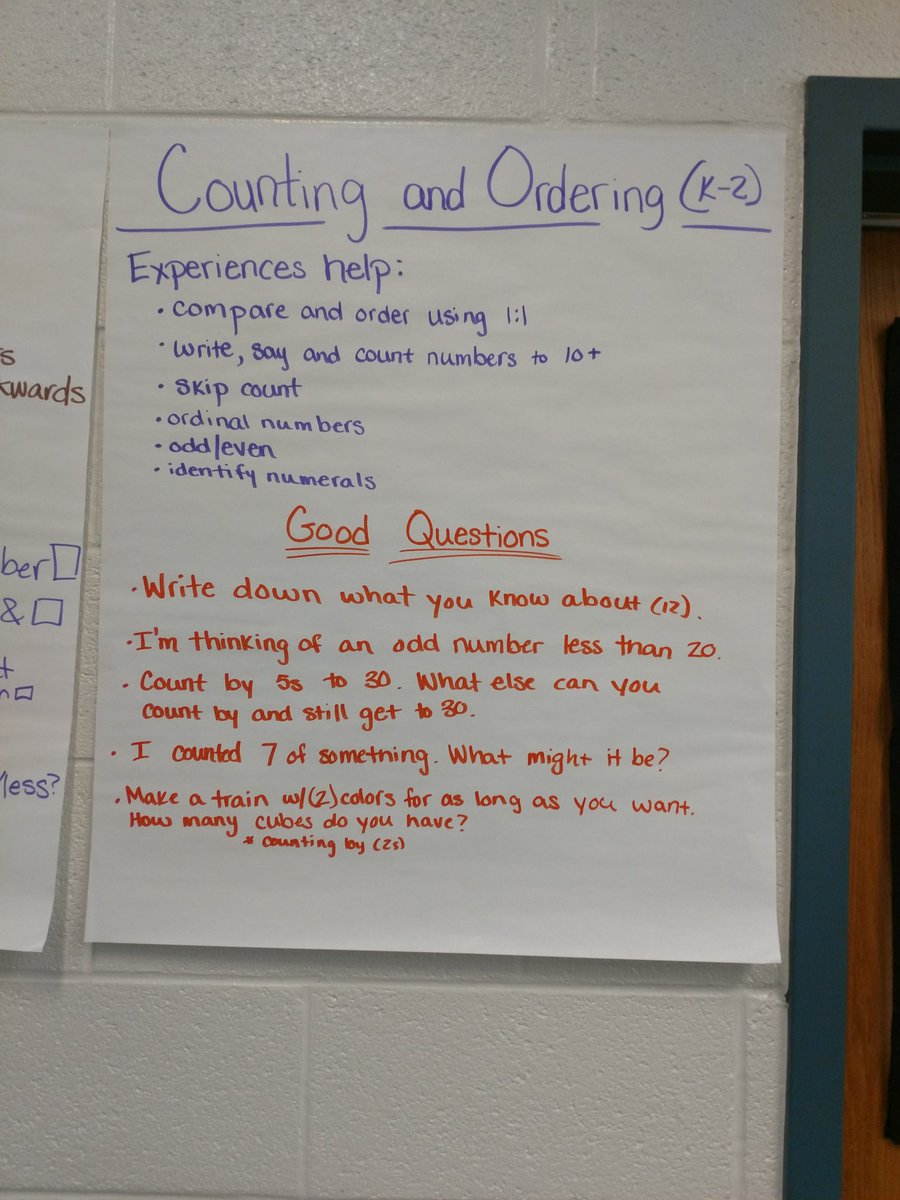 Counting and Ordering (K-2)
Experiences help:
• compare and order using 1:1
• write, say and count numbers to 10+
• skip count
• ordinal numbers
• odd/even
• identify numerals
Good Questions
• Write down what you know about (12).
• I'm thinking of an odd number less than 20.
• Count by 5s to 30. What else can you
count by and still get to 30.
• I counted 7 of something. What might it be?
• Make a train w/(2) colors for as long as you want.
How many cubes do you have?
* counting by (2s)
kwards
ber
&
less?